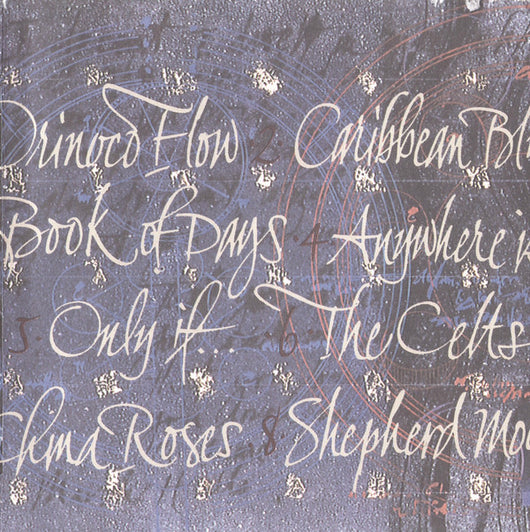 Orinoco Flow 2. Caribbean Bl
Book of Days 4. Anywhere is
5. Only if... 6 The Celts
kma Roses 8. Shepherd Moo